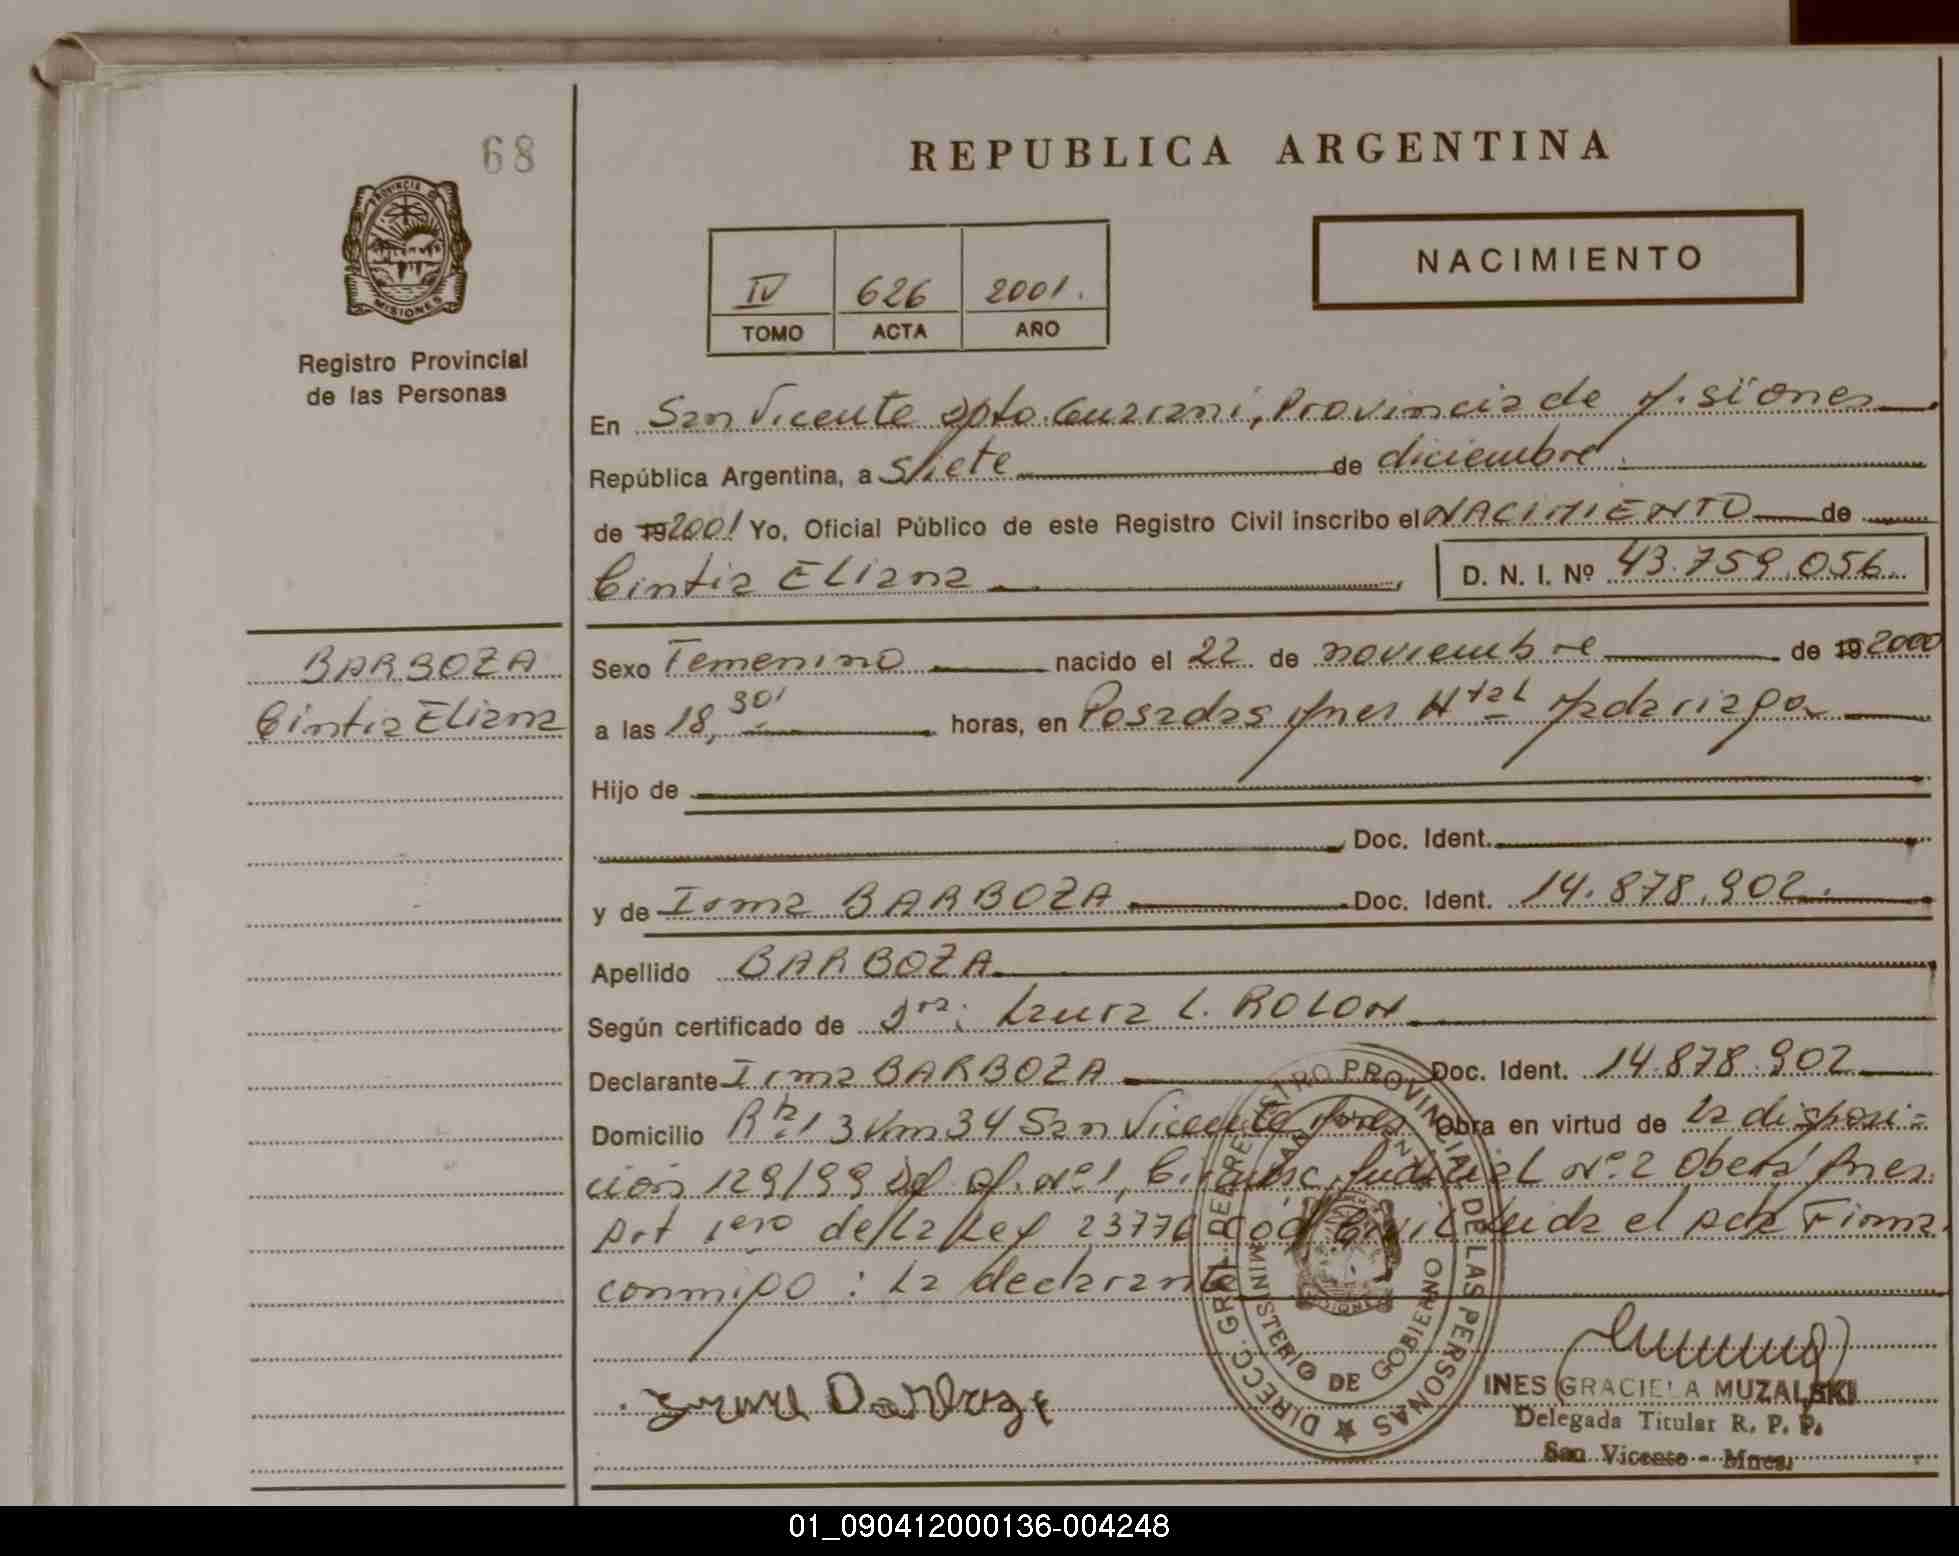 68
REPUBLICA ARGENTINA
PROVINCIA DE MISIONES
NACIMIENTO
IV 626 2001.
TOMO ACTA AÑO
Registro Provincial
de las Personas
En San Vicente Dpto. Guarani, Provincia de Misiones
República Argentina, a Siete de diciembre
de 19 2001 Yo, Oficial Público de este Registro Civil inscribo el NACIMIENTO de
Cintia Eliana D. N. I. Nº 43.759.056.
BARBOZA
Cintia Eliana
Sexo Femenino nacido el 22 de noviembre de 19 2000
a las 18,30' horas, en Posadas Mnes Htal Madariaga
Hijo de
Doc. Ident.
y de Irma BARBOZA Doc. Ident. 14.878.902.
Apellido BARBOZA
Según certificado de Dra: Laura L. ROLON
Declarante Irma BARBOZA Doc. Ident. 14.878.902
Domicilio Rta 13 Km 34 San Vicente Mnes Obra en virtud de la disposi=
ción 129/99 Def. of. Nº 1, Circunsc. Judicial Nº 2 Oberá Mnes.
Art 1ero de la Ley 23776 Cod Civil Leida el acta Firma
conmigo: La declarante
DIRECC. GRAL. DE REGISTRO PROVINCIAL DE LAS PERSONAS
MINISTERIO DE GOBIERNO
Irma Barboza
INES GRACIELA MUZALSKI
Delegada Titular R. P. P.
San Vicente - Mnes.
01_090412000136-004248